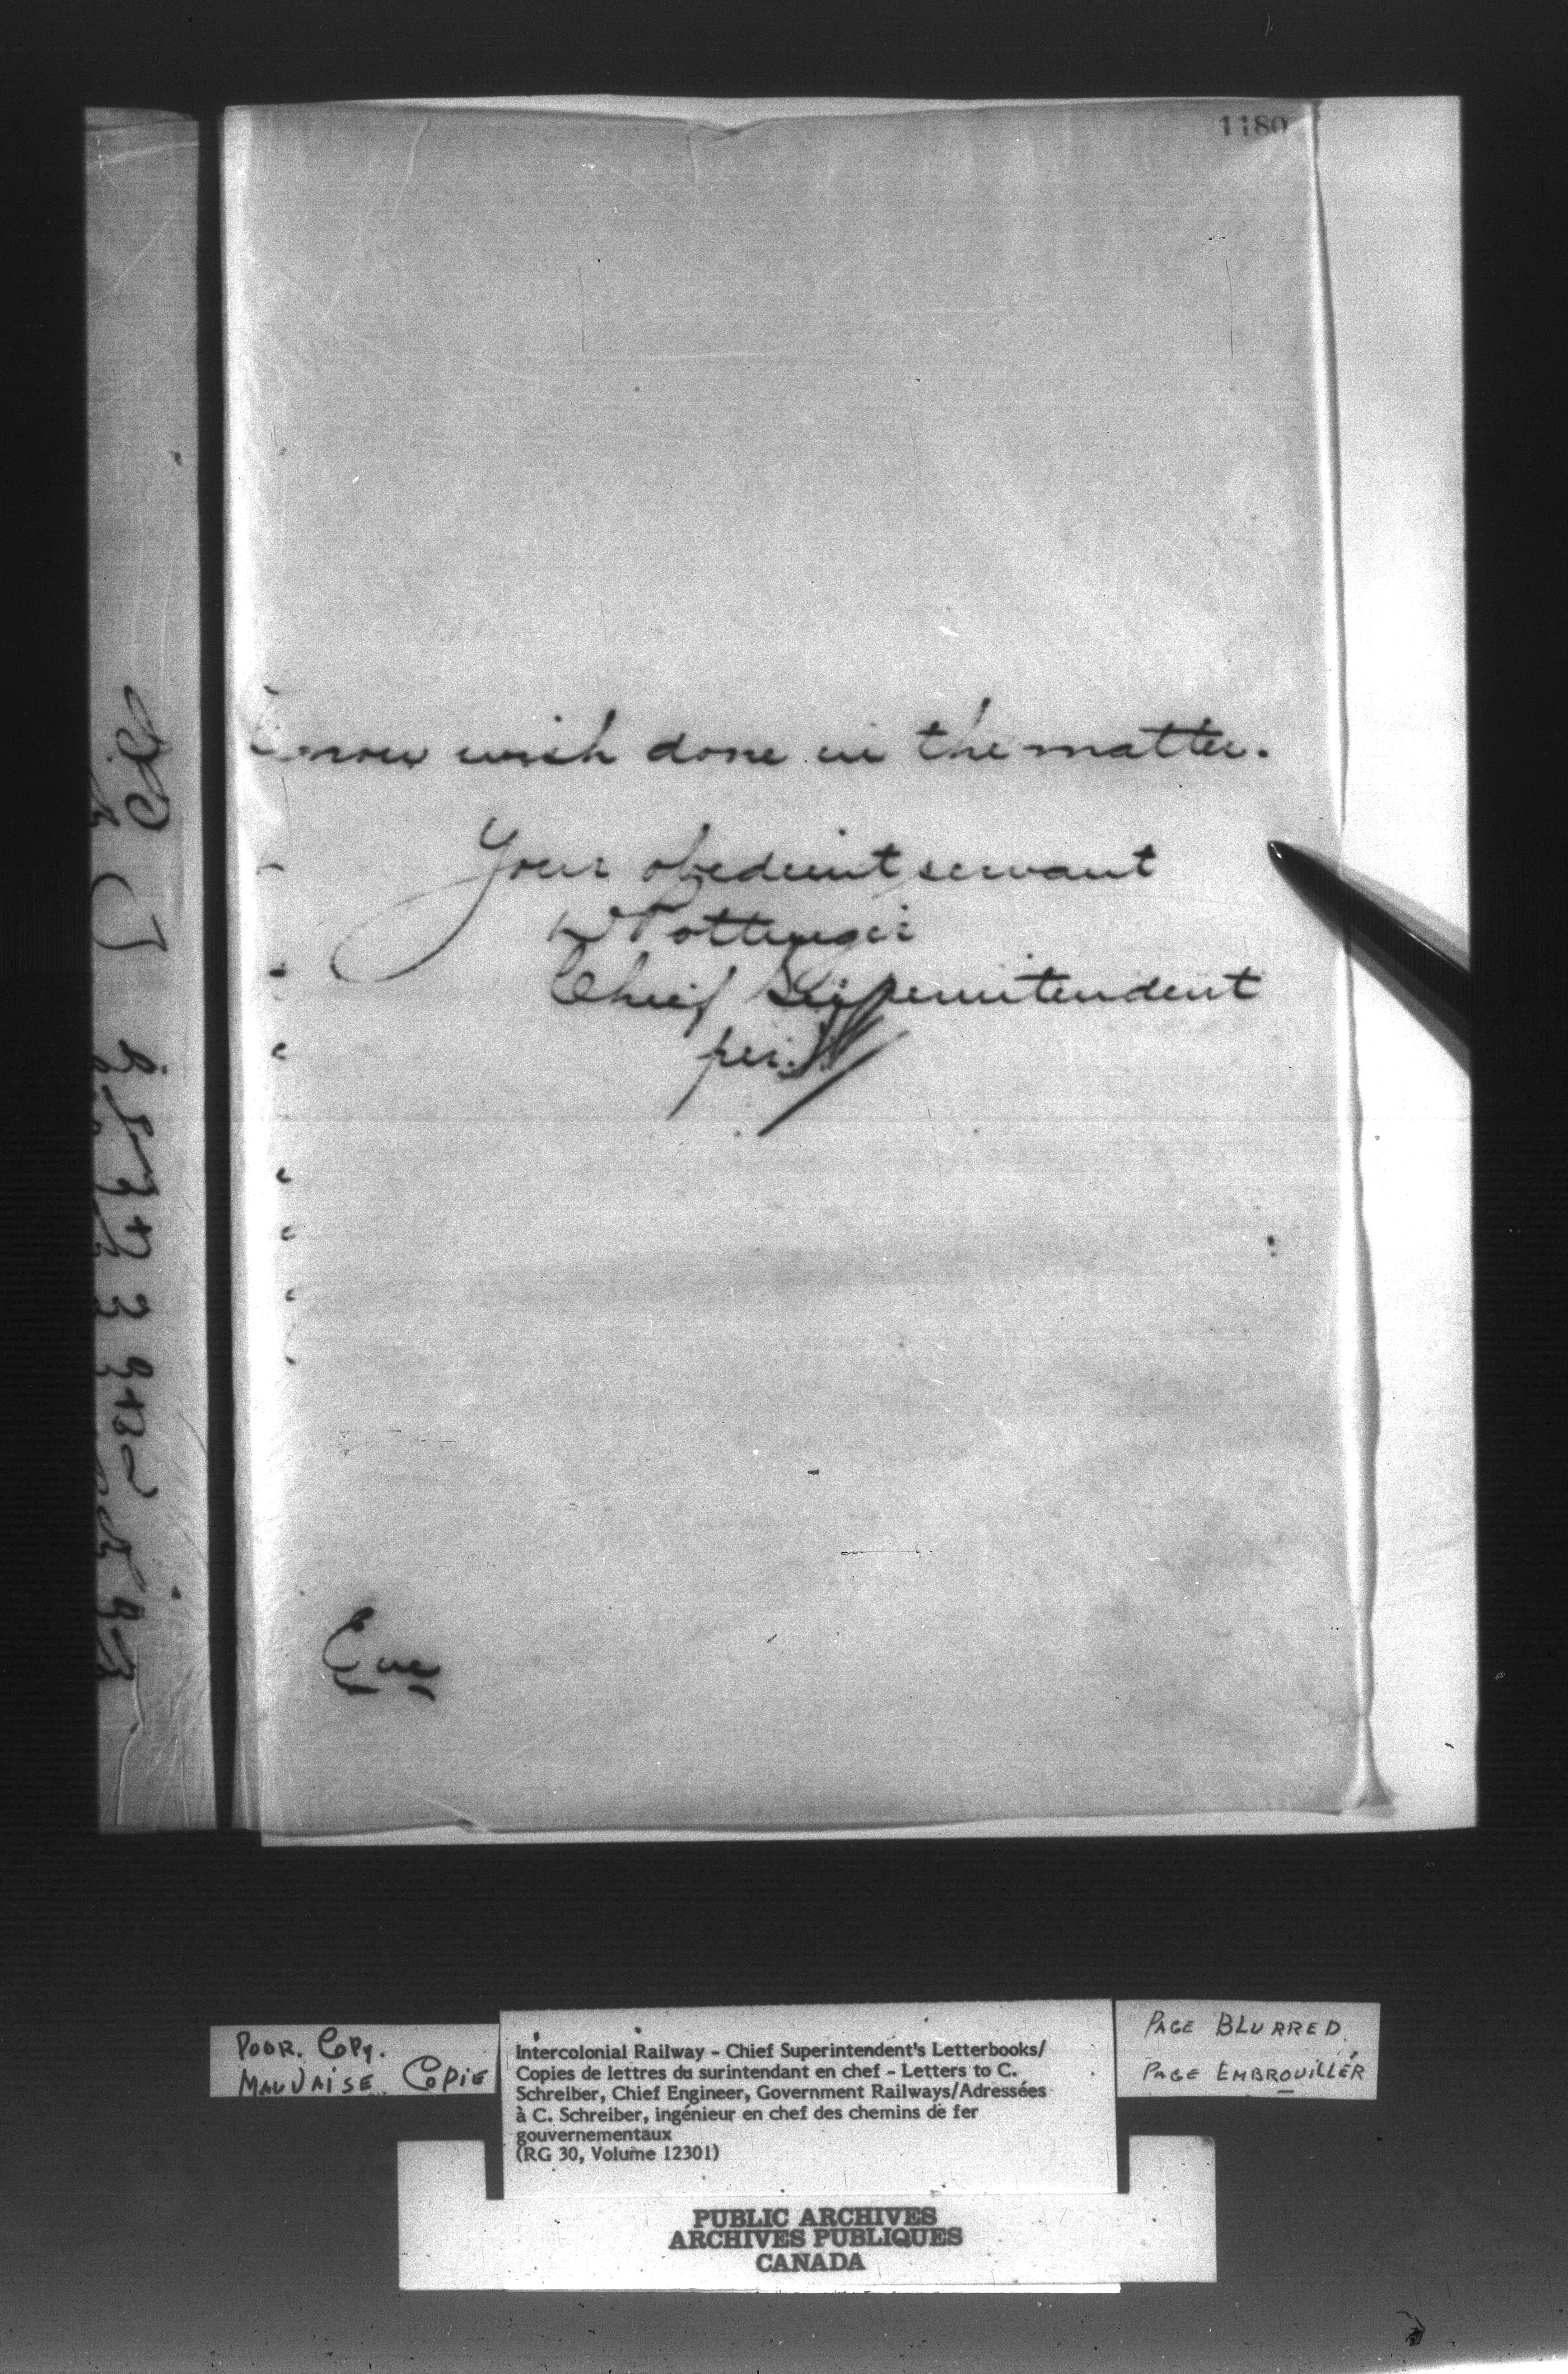 1180
now wish done in the matter.
Your obedient servant
D Pottinger
Chief Superintendent
per.
Enc
POOR. COPY.
MAUVAISE COPIE
Intercolonial Railway - Chief Superintendent's Letterbooks/
Copies de lettres du surintendant en chef - Letters to C.
Schreiber, Chief Engineer, Government Railways/Adressées
à C. Schreiber, ingénieur en chef des chemins de fer
gouvernementaux
(RG 30, Volume 12301)
PAGE BLURRED.
PAGE EMBROUILLÉR
PUBLIC ARCHIVES
ARCHIVES PUBLIQUES
CANADA